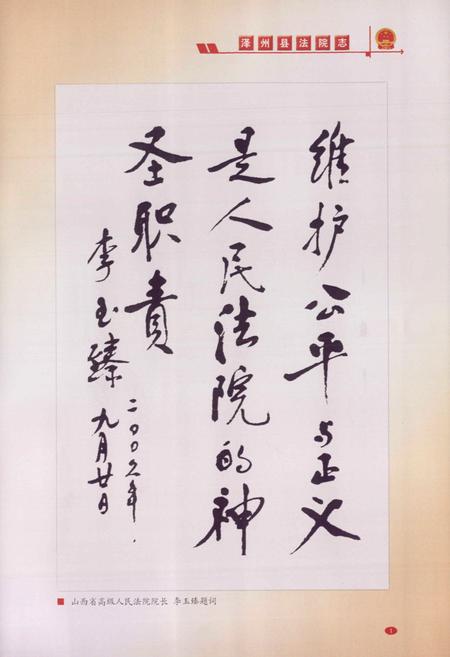 泽州县法院志
维护公平与正义
是人民法院的神
圣职责
李玉臻
二〇〇六年
九月廿日
山西省高级人民法院院长 李玉臻题词
1